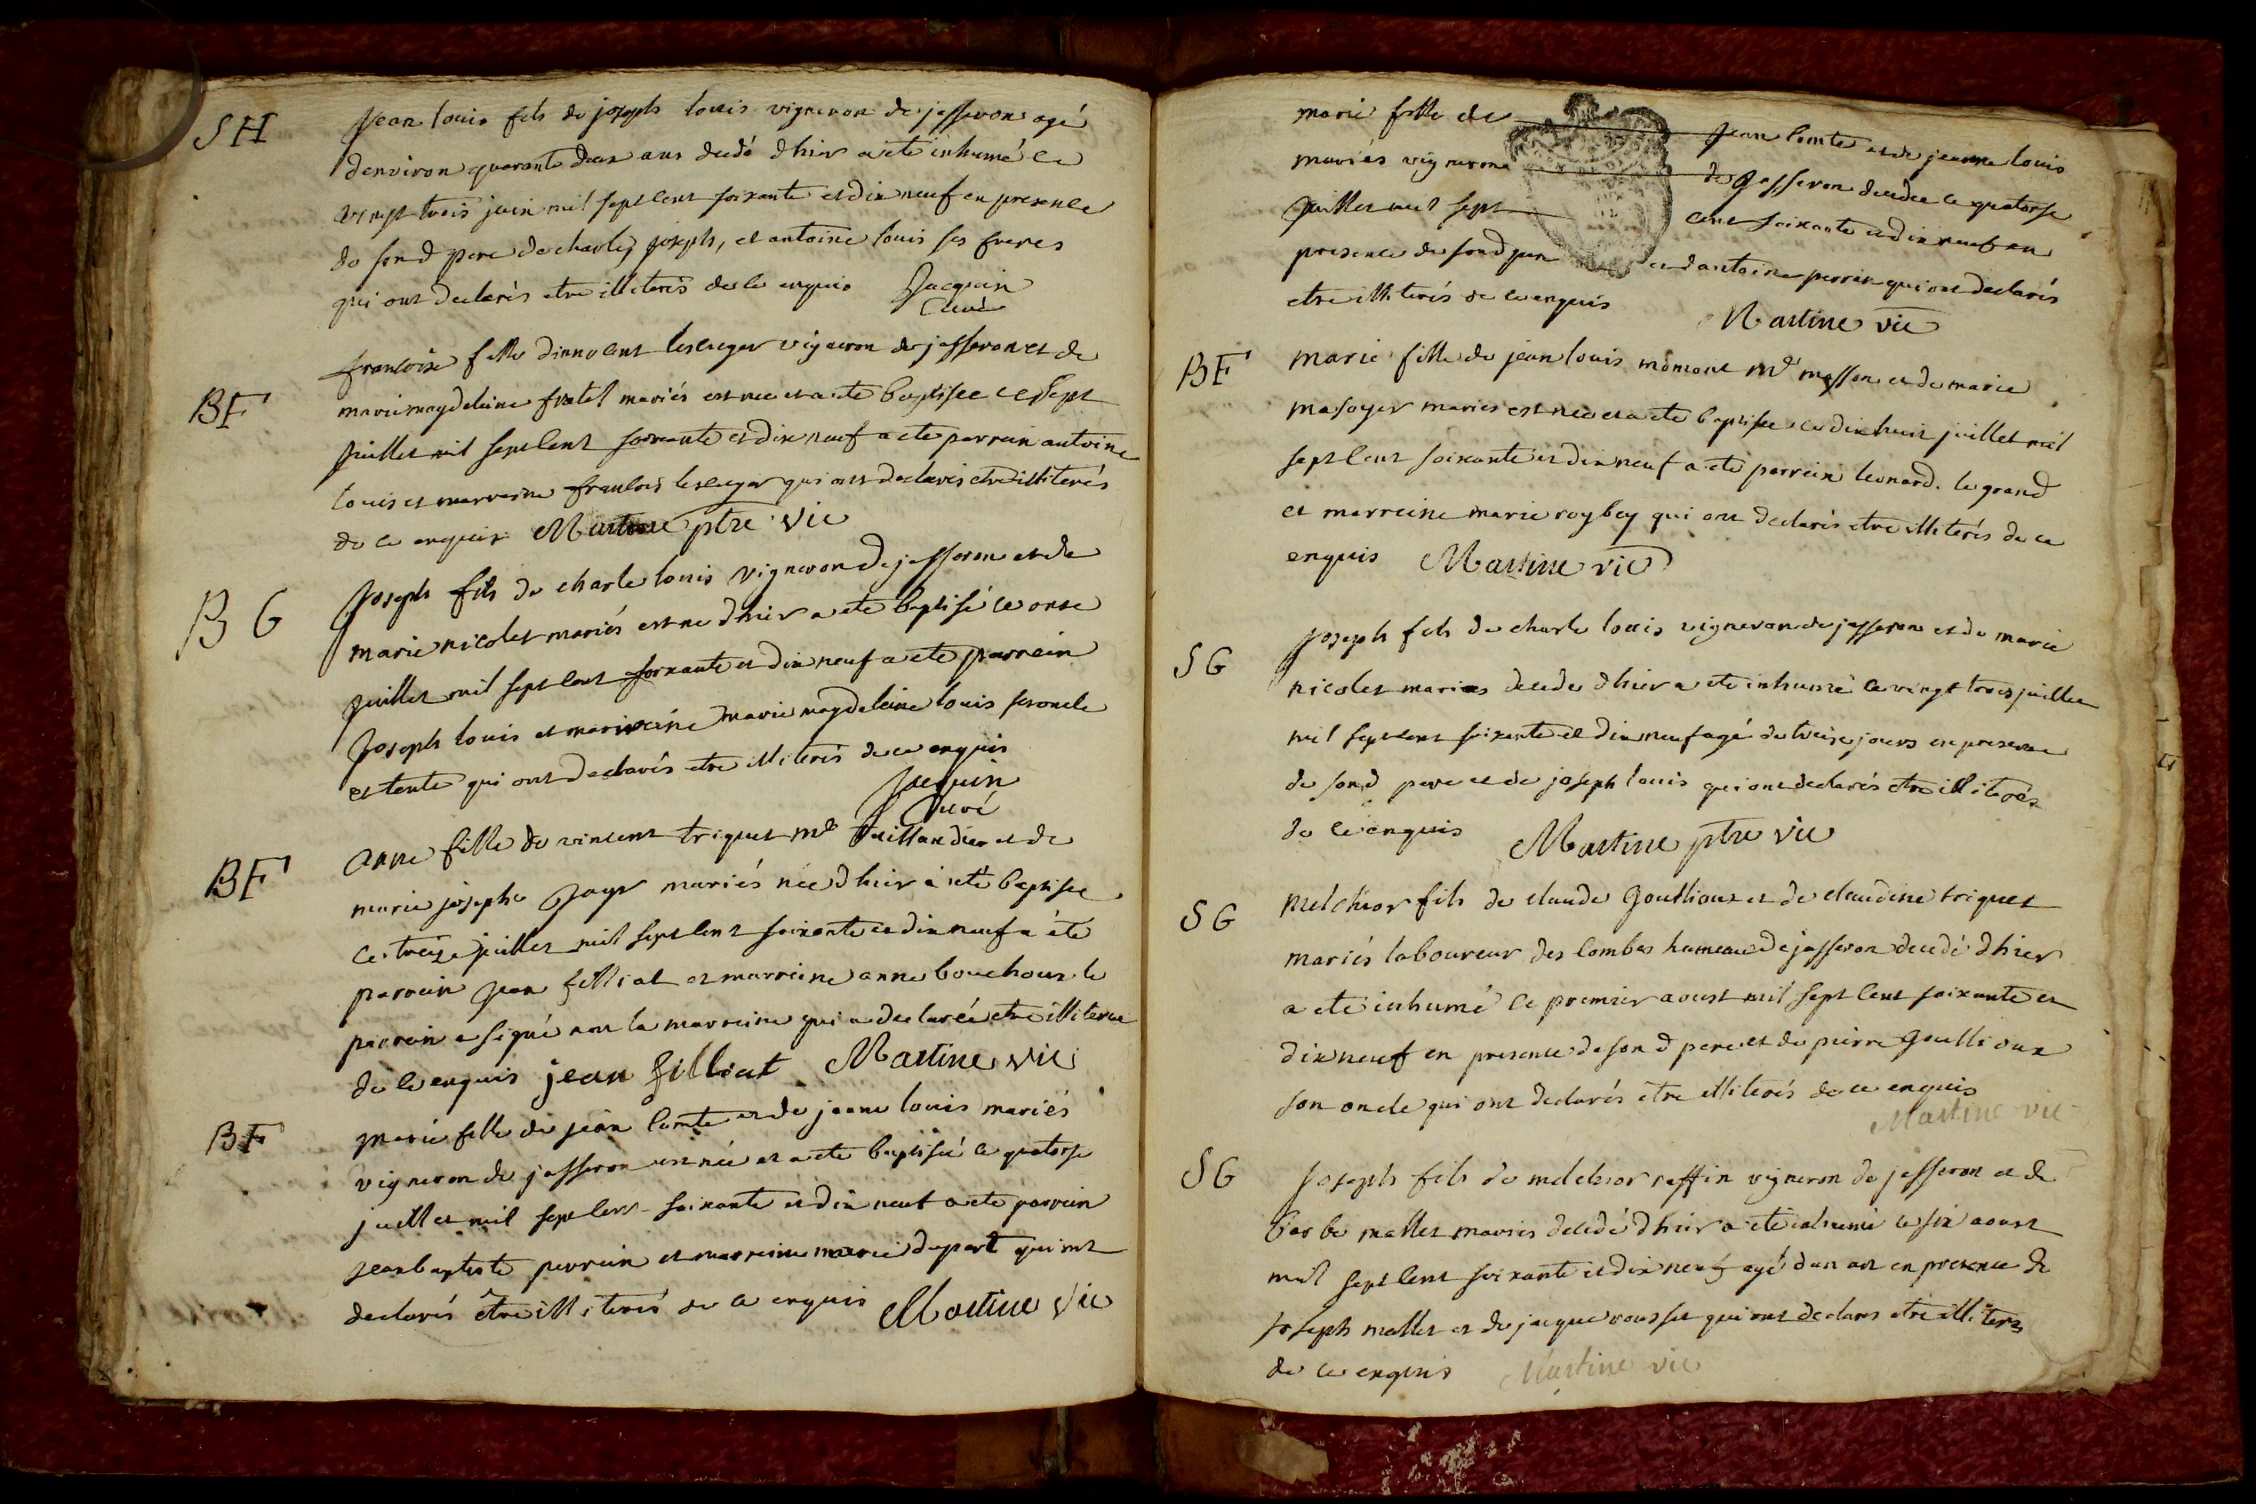 SH
Jean louis fils de joseph louis vigneron de jasseron agé
denviron quarante deux ans decedé dhier a eté inhumé ce
vingt trois juin mil sept cent soixante et dix neuf en presence
de sond pere de charle, joseph, et antoine louis ses freres
qui ont declarés etre illiterés de ce enquis Jacquin
Curé
BF
francoise fille dinnocent lescuyer vigneron de jasseron et de
marie magdeleine mariés est nee et a ete baptisee ce sept
juillet mil sept cent soixante et dix neuf a ete parrain antoine
louis et marraine francoise lescuyer qui ont declarés etre illiterés
de ce enquis Martine ptre vic
BG
Joseph fils de charle louis vigneron de jasseron et de
marie nicolet mariés est ne dhier a ete baptisé ce onze
juillet mil sept cent soixante et dix neuf a ete parrain
Joseph louis et marreine marie magdeleine louis ses oncle
et tente qui ont declarés etre illiterés de ce enquis
Jacquin
Curé
BF
anne fille de vincent triquet md taillandier et de
marie josephe Joyr mariés née dhier a eté baptisee
ce treize juillet mil sept cent soixante et dix neuf a été
parrain jean filliat et marreine anne bouchoux le
parrain a signé non la marreine qui a declarée etre illiteree
de ce enquis jean filliat Martine vic
BF
marie fille de jean comte et de jeane louis mariés
vigneron de jasseron est née et a eté baptisée ce quatorse
juillet mil sept cent soixante et dix neuf a ete parrain
jean baptiste perrein et marreine marie dupart qui ont
declarés être illiterés de ce enquis Martine vic
marie fille de jean comte et de jeanne louis
mariés vigneron de jasseron decedee ce quatorse
juillet mil sept cent soixante et dix neuf en
presence de sond pere et dantoine perrin qui ont declarés
etre illiterés de ce enquis Martine vic
BF
marie fille de jean louis momont md masson et de marie
masoyer mariés est nee et a ete baptisee ce dix huit juillet mil
sept cent soixante et dix neuf a ete parrein leonard le grand
et marreine marie roybey qui ont declarés etre illiterés de ce
enquis Martine vic
SG
Joseph fils de charle louis vigneron de jasseron et de marie
nicolet mariés decedé dhier a eté inhumé ce vingt trois juillet
mil sept cent soixante et dix neuf agé de treize jours en presence
de sond pere et de joseph louis qui ont declarés etre illiterés
de ce enquis Martine ptre vic
SG
Melchior fils de claude Goullioux et de claudine triquet
mariés laboureur des combes hameau de jasseron decedé dhier
a eté inhumé ce premier aoust mil sept cent soixante et
dix neuf en presence de son d pere et de pierre Goullioux
son oncle qui ont declarés etre illiterés de ce enquis
Martine vic
SG
Joseph fils de melchior raffin vigneron de jasseron et de
barbe mallet mariés decedé dhier a eté inhumé ce six aoust
mil sept cent soixante et dix neuf agé dun an en presence de
joseph mallet et de jacque rousset qui ont declarés etre illiterés
de ce enquis Martine vic